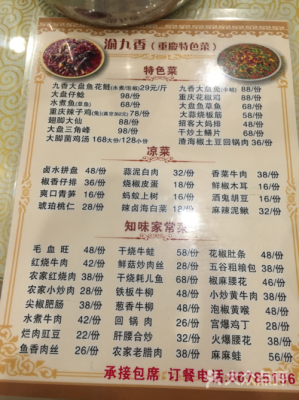 渝九香（重慶特色菜）
特色菜
九香大盘鱼花鲢(水煮/泡椒)29元/斤
大盘仔鲶 98/份
水煮鱼(草鱼) 68/份
重庆辣子鸡
翅脚大仙 68/份
大盘三角峰 98/份
大脚菌鸡汤 168大份/128小份
九香大盘兔 88/份
重庆花椒鸡 88/份
大盘鱼草鱼 68/份
大蒜烧板筋 68/份
招客大妈排 48/份
干炒土鳝片 68/份
渣海椒土豆回锅肉 36/份
凉菜
卤水拼盘 48/份 蒜泥白肉 32/份 香菜牛肉 39/份
椒香仔排 36/份 烧椒皮蛋 18/份 鲜椒木耳 16/份
爽口青笋 16/份 蚂蚁上树 16/份 酒鬼胡豆 16/份
琥珀桃仁 28/份 辣卤海白菜 18/份 麻辣泥鳅 32/份
知味家常菜
毛血旺 48/份 干烧牛蛙 58/份 花椒肚条 48/份
红烧牛肉 42/份 鲜菇炒肉丝 28/份 五谷粗粮包 38/份
农家红烧肉 38/份 干烧耗儿鱼 68/份 椒麻腰花 36/份
农家小炒肉 28/份 铁板牛柳 48/份 小炒黄牛肉 38/份
尖椒肥肠 38/份 葱香牛柳 48/份 泡椒黄喉 48/份
水煮牛肉 42/份 回锅肉 26/份 宫爆鸡丁 28/份
烂肉豇豆 22/份 肝腰合炒 32/份 火爆腰花 38/份
鱼香肉丝 26/份 农家老腊肉 38/份 麻麻蛙 56/份
承接包席 订餐电话:86785196